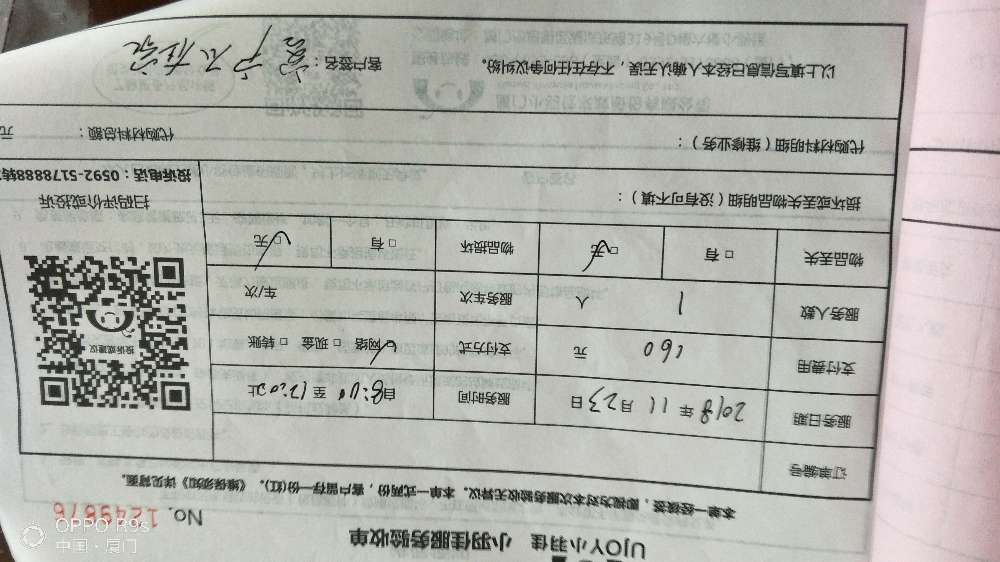 UJOY小羽佳 小羽佳服务验收单
No. 1249876
本单一经接签,即视为对本次服务验收无异议。本单一式两份,客户留存一份(红)。《维保须知》详见背面。
订单编号
服务日期 2018年11月23日 服务时间 自8:00至12:00止
支付费用 160 元 支付方式 □网络 □现金 □转账
服务人数 1 人 服务车次 车/次
物品丢失 □有 □无 物品损坏 □有 □无
投诉或建议
扫码评价或投诉
投诉电话:0592-5178888转
损坏或丢失物品明细(没有可不填):
代购材料明细(维修业务): 代购材料总额: 元
以上填写信息已经本人确认无误,不存在任何争议纠纷。 客户签名: 客户不在家
OPPO R9s
中国·厦门